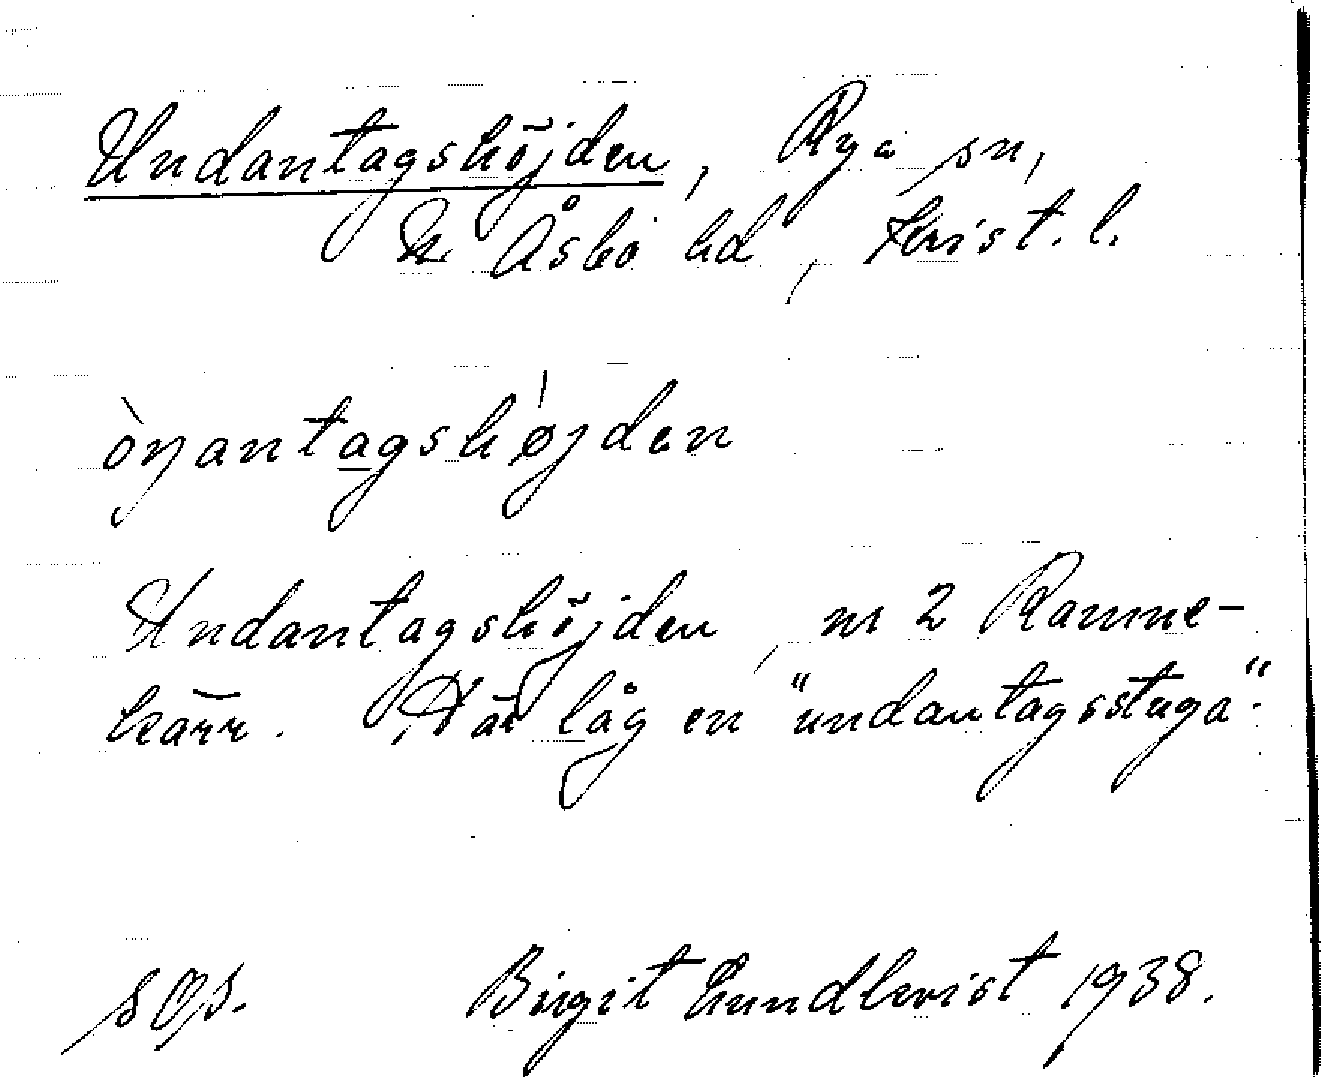 Undantagshöjden, Rya sn,
N Åsbo hd, Krist. l.
òŋantagshǿjden
Undantagshöjden, nr 2 Ramne-
kärr. Där låg en "undantagsstuga".
Birgit Lundkvist 1938.